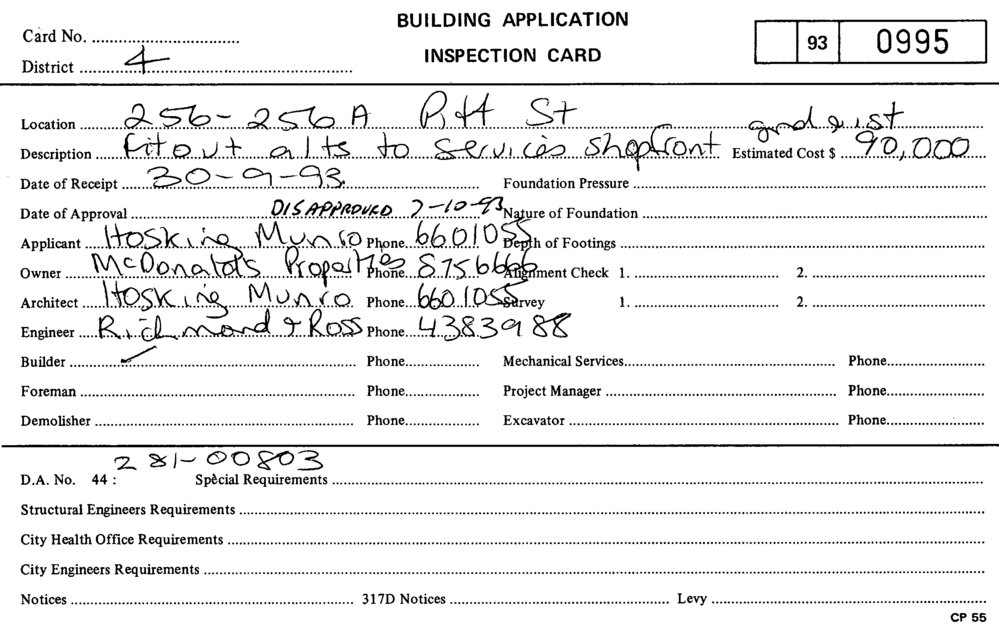 BUILDING APPLICATION
Card No.
INSPECTION CARD
93 0995
District 4
Location 256-256A Pitt St grd & 1st
Description Fitout alts to services shopfront Estimated Cost $ 90,000
Date of Receipt 30-9-93. Foundation Pressure
Date of Approval DISAPPROVED 7-10-93 Nature of Foundation
Applicant Hosking Munro Phone 6601055 Depth of Footings
Owner McDonald's Properties Phone 8756666 Alignment Check 1. 2.
Architect Hosking Munro Phone 6601055 Survey 1. 2.
Engineer Richmond + Ross Phone 4383988
Builder Phone Mechanical Services Phone
Foreman Phone Project Manager Phone
Demolisher Phone Excavator Phone
D.A. No. 44: 281-00803 Special Requirements
Structural Engineers Requirements
City Health Office Requirements
City Engineers Requirements
Notices 317D Notices Levy
CP 55